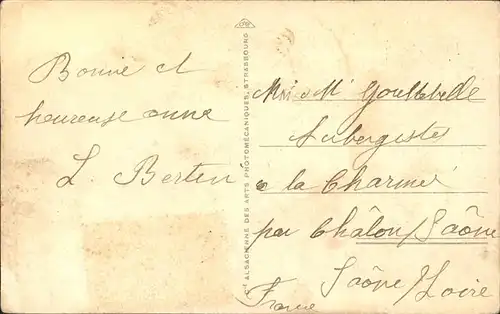 Bonne et
heureuse anne
L. Berten
Cie ALSACIENNE DES ARTS PHOTOMÉCANIQUES, STRASBOURG
Mr et Me
Aubergiste
a la Charmé
par Châlon/Saône
Saône/Loire
France